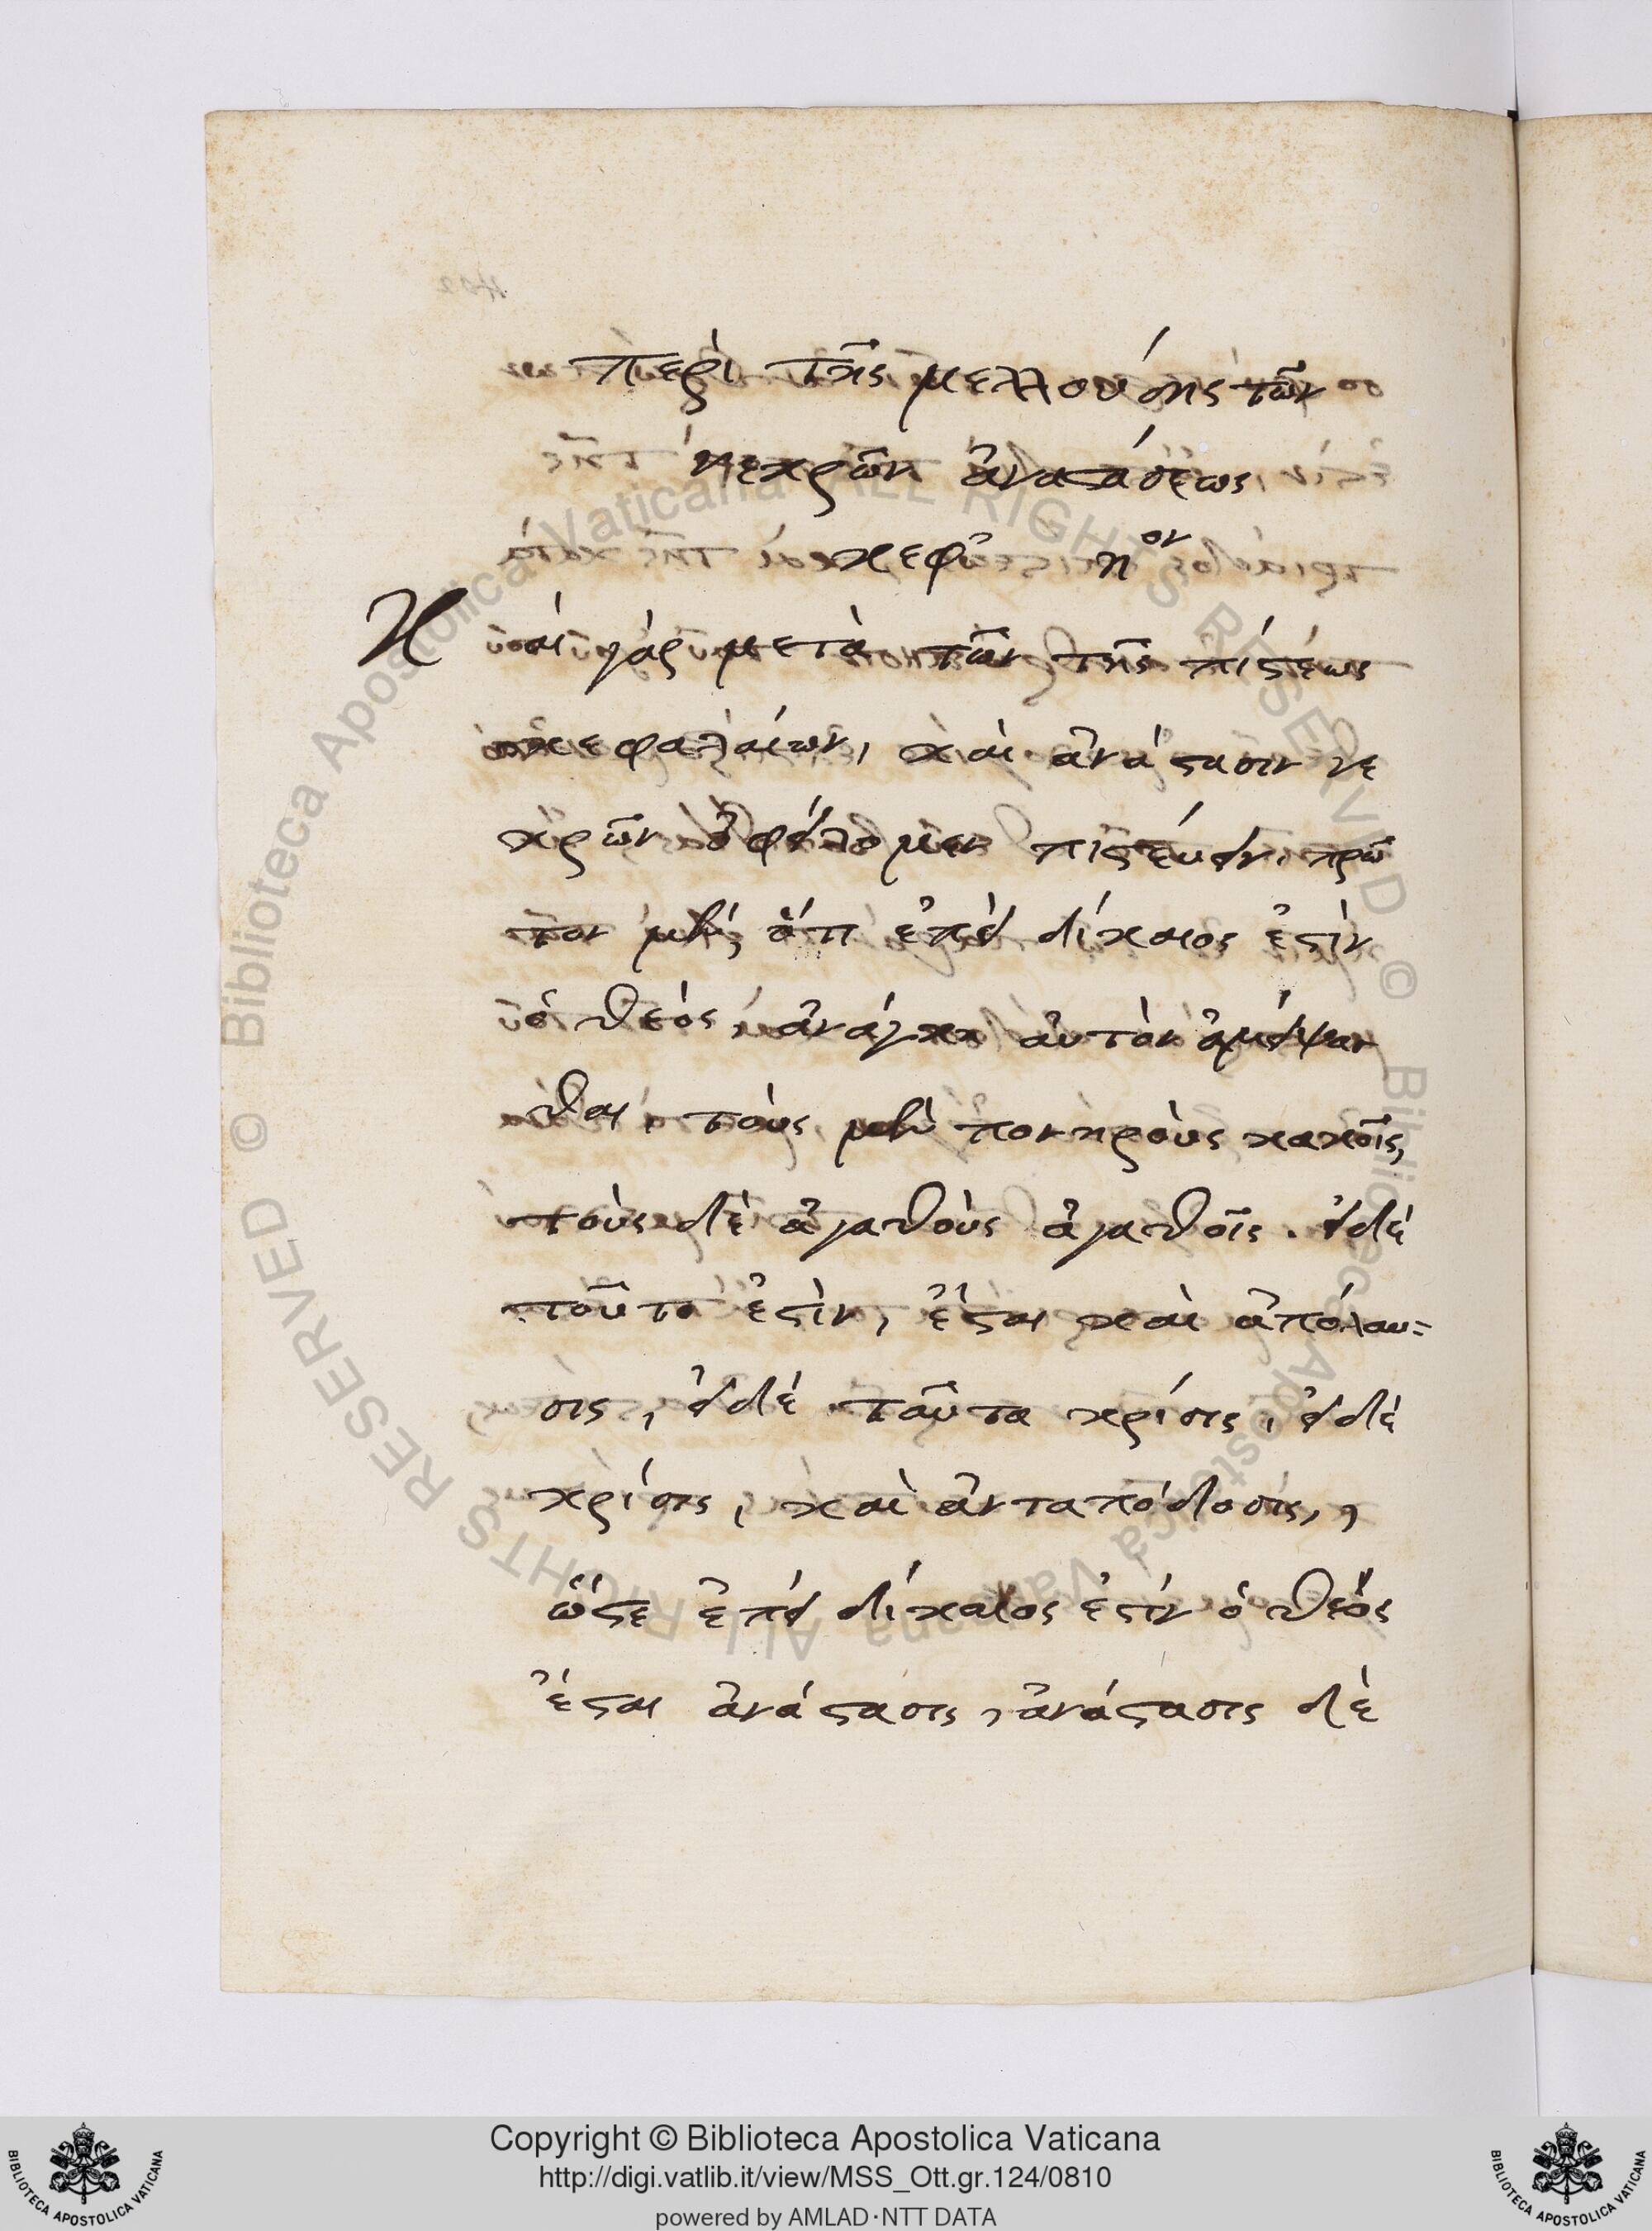 περὶ τῆς μελλούσης τῶν
νεκρῶν ἀναστάσεως
κεφ' η ον
Καὶ γὰρ μετὰ τῶν τῆς πίστεως
κεφαλαίων, καὶ ἀνάστασιν νε
κρῶν ὀφείλομεν πιστεύειν. πρῶ
τον μὲν, ὅτι ἐπεὶ δίκαιος ἐστὶν
ὁ θεός, ἀνάγκη αὐτὸν ἀμείψασ
θαι, τοὺς μὲν πονηροὺς κακοῖς,
τοὺς δὲ ἀγαθοὺς ἀγαθοῖς. εἰ δὲ
τοῦτο ἐστὶν, ἔσται καὶ ἀπόλαυ=
σις, εἰ δὲ ταῦτα κρίσις, εἰ δὲ
κρίσις, καὶ ἀνταπόδοσις,,
ὥστε ἐπεὶ δίκαιος ἐστίν ὁ θεός
ἔσται ἀνάστασις, ἀνάστασις δὲ
Copyright © Biblioteca Apostolica Vaticana
http://digi.vatlib.it/view/MSS_Ott.gr.124/0810
powered by AMLAD·NTT DATA
BIBLIOTECA APOSTOLICA VATICANA
BIBLIOTECA APOSTOLICA VATICANA
© Biblioteca Apostolica Vaticana ALL RIGHTS RESERVED © Biblioteca Apostolica Vaticana ALL RIGHTS RESERVED